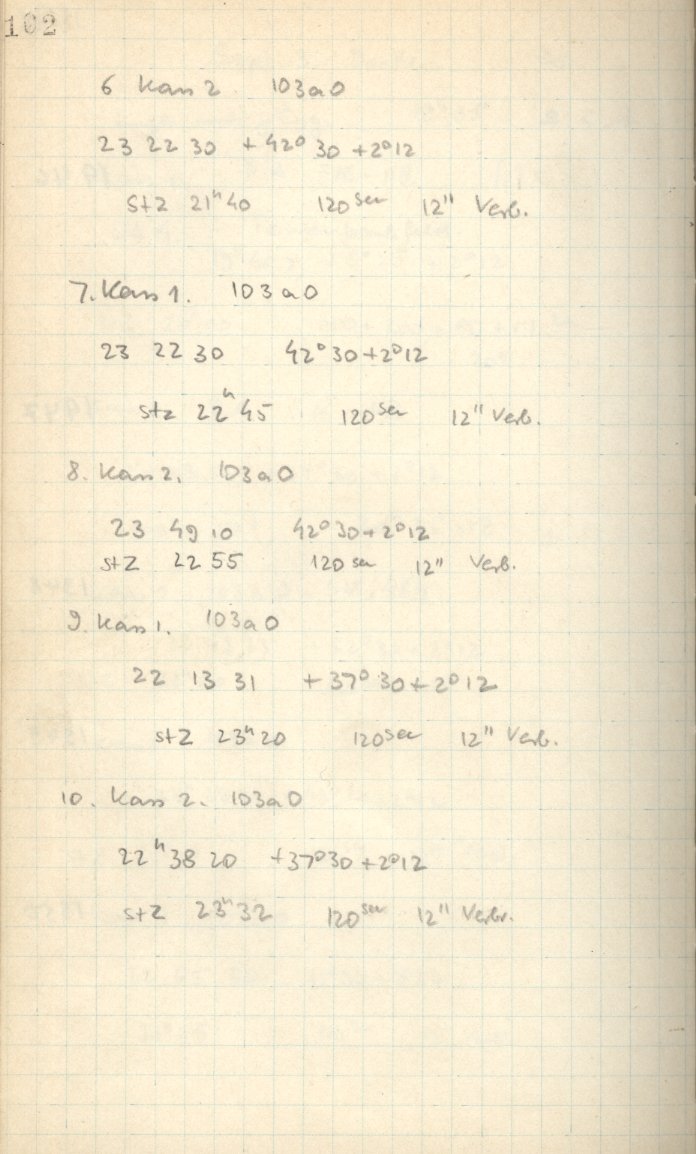 102
6 Kass 2 103a0
23 22 30 +42° 30 +2°12
stz 21ʰ40 120ˢᵉᶜ 12" Verb.
7. Kass 1. 103a0
23 22 30 42°30+2°12
stz 22ʰ45 120ˢᵉᶜ 12" Verb.
8. Kass 2. 103a0
23 49 10 42°30+2°12
stz 22 55 120 sec 12" Verb.
9. Kass 1. 103a0
22 13 31 +37°30+2°12
stz 23ʰ20 120ˢᵉᶜ 12" Verb.
10. Kass 2. 103a0
22ʰ38 20 +37°30+2°12
stz 23ʰ32 120ˢᵉᶜ 12" Verbr.